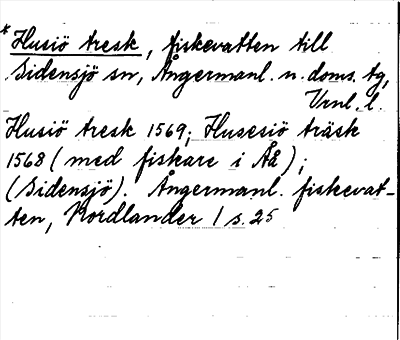 * Husiö tresk, fiskevatten till
Sidensjö sn, Ångermanl. n. doms. tg,
Vrnl. l.
Husiö tresk 1569; Husesiö träsk
1568 (med fiskare i Åå);
(Sidensjö). Ångermanl. fiskevat-
ten, Nordlander / s. 25